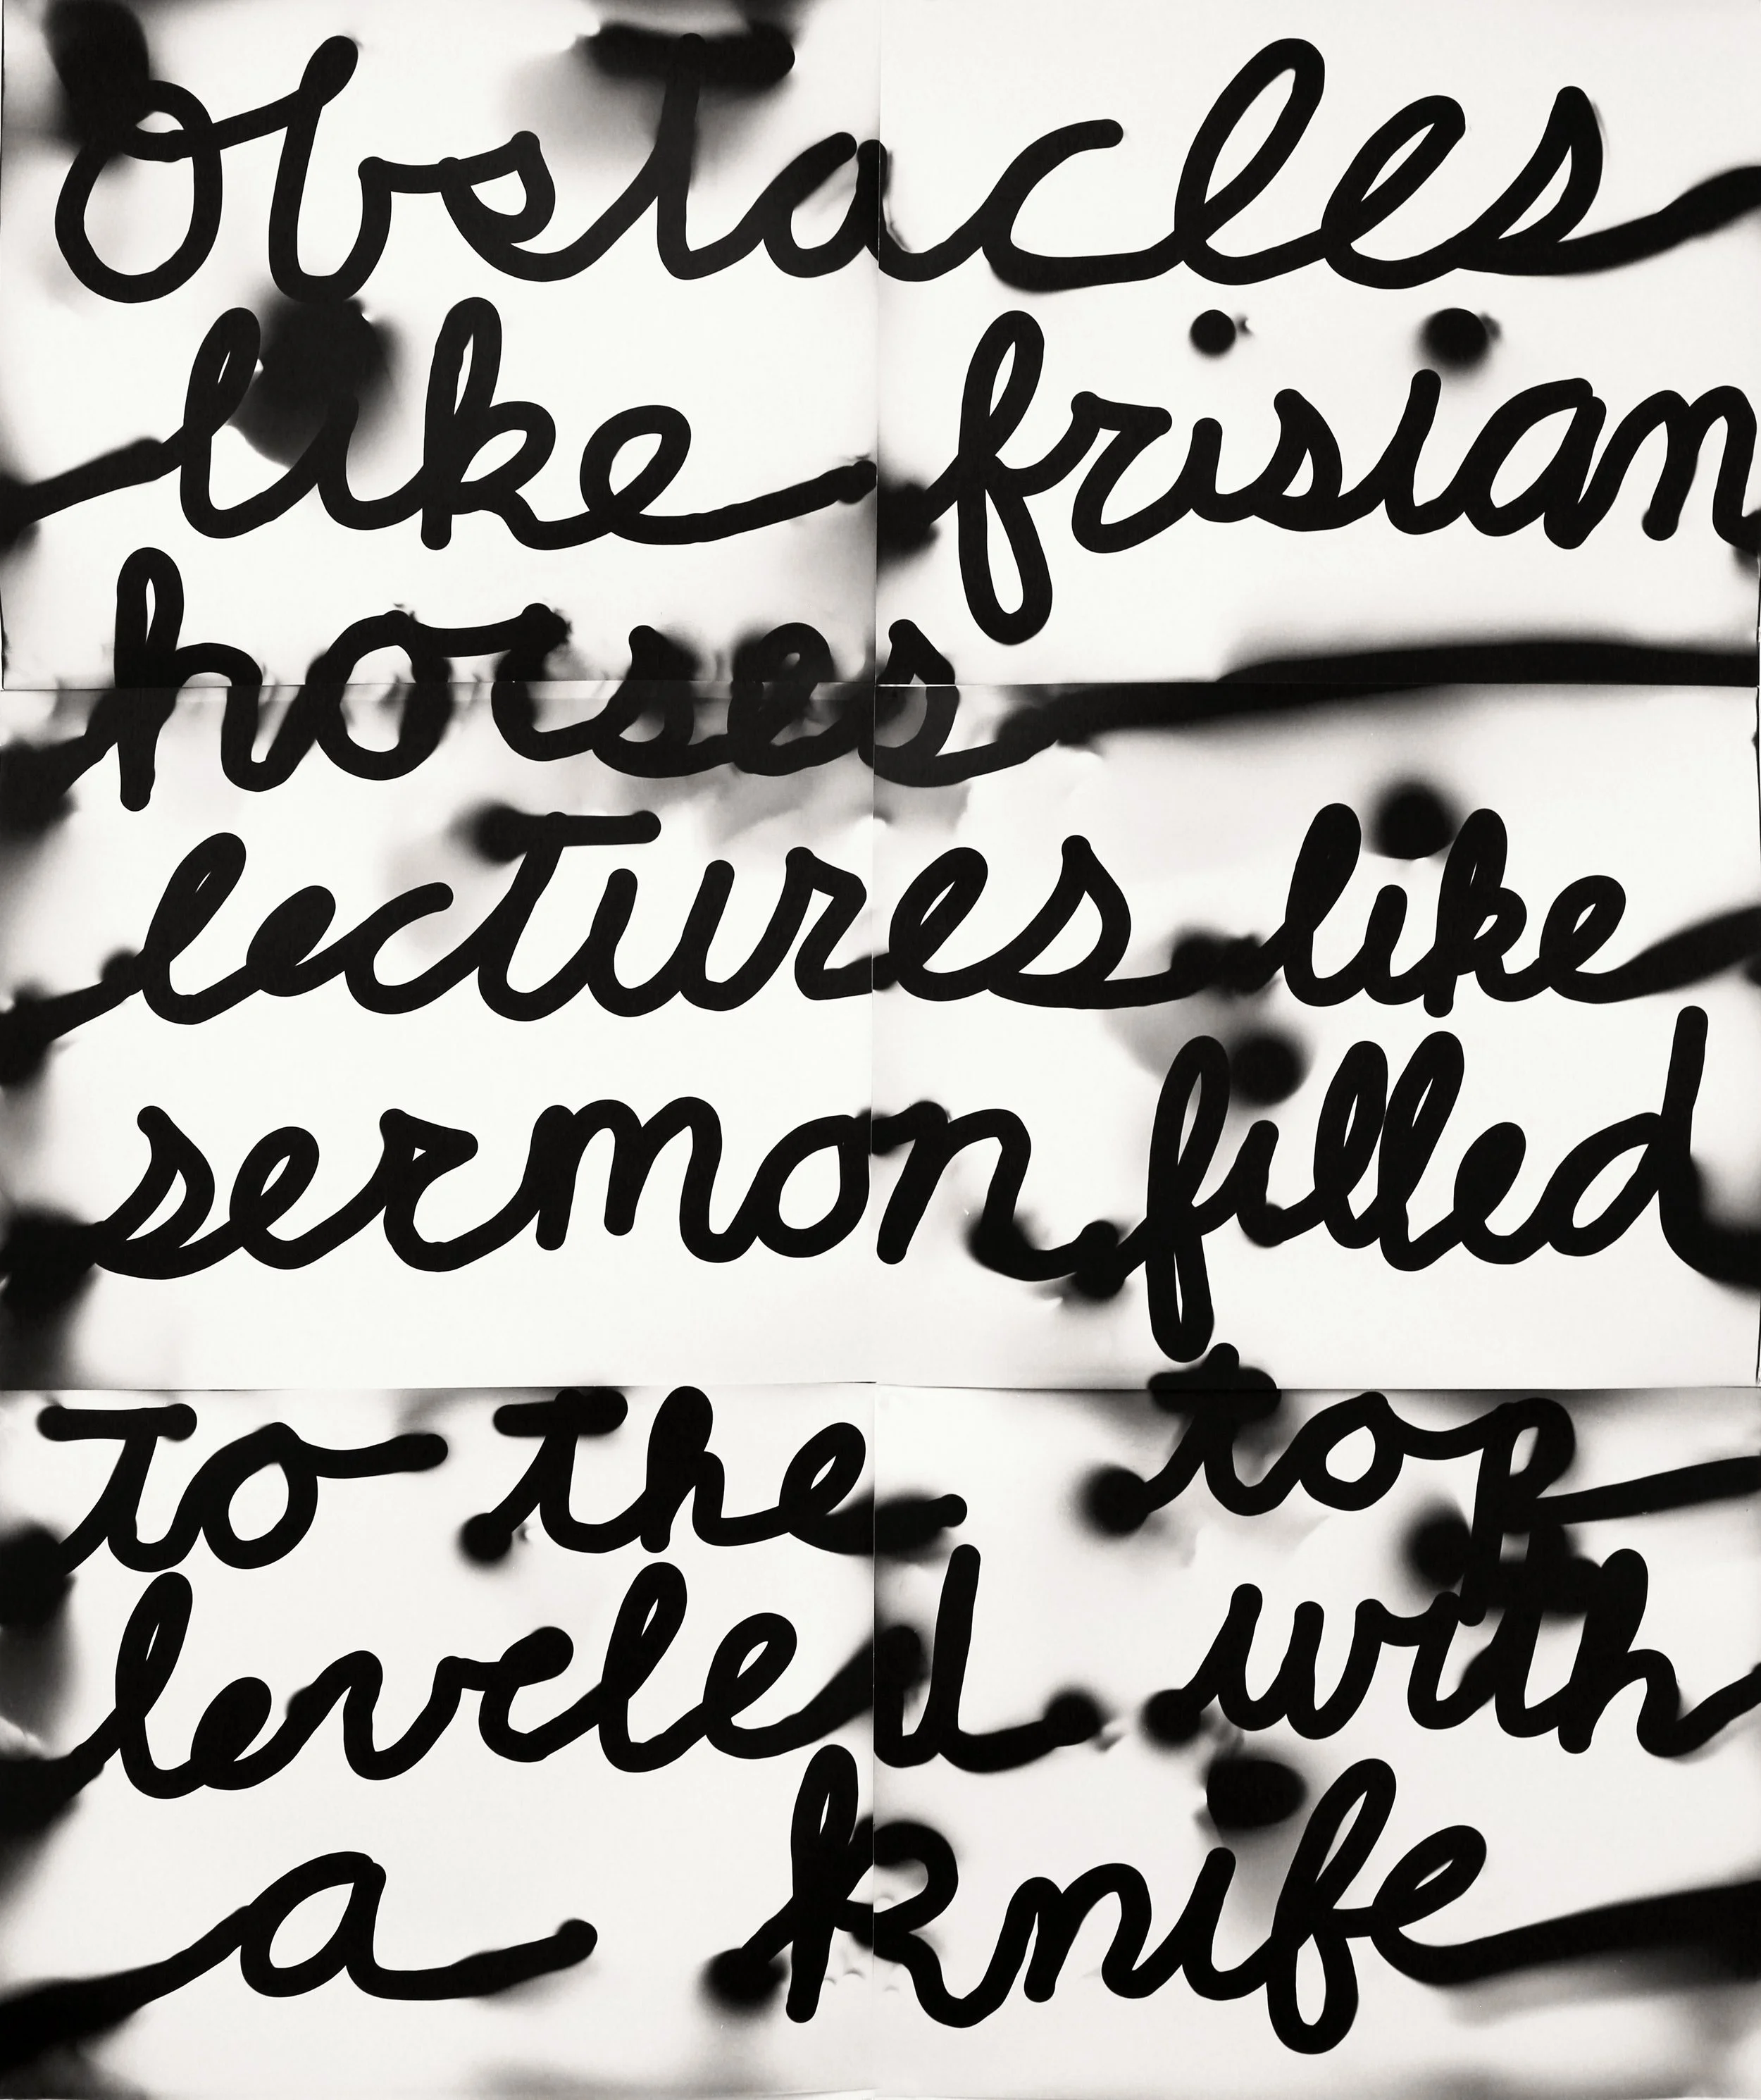 Obstacles
like frisian
horses
lectures like
sermon filled
to the top
leveled with
a knife